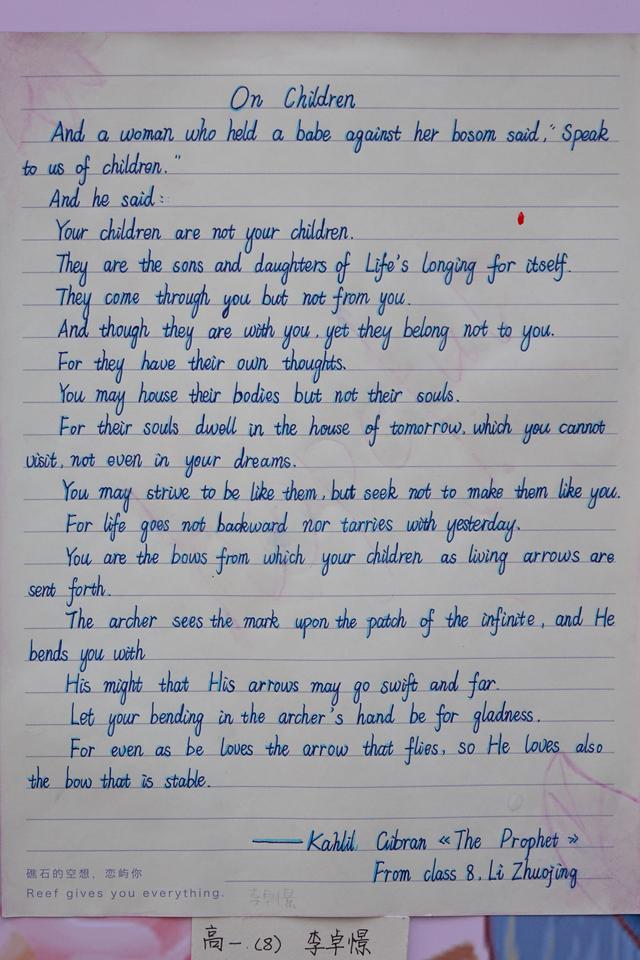 On Children
And a woman who held a babe against her bosom said, "Speak
to us of children."
And he said:
Your children are not your children.
They are the sons and daughters of Life's longing for itself.
They come through you but not from you.
And though they are with you, yet they belong not to you.
For they have their own thoughts.
You may house their bodies but not their souls.
For their souls dwell in the house of tomorrow, which you cannot
visit, not even in your dreams.
You may strive to be like them, but seek not to make them like you.
For life goes not backward nor tarries with yesterday.
You are the bows from which your children as living arrows are
sent forth.
The archer sees the mark upon the patch of the infinite, and He
bends you with
His might that His arrows may go swift and far.
Let your bending in the archer's hand be for gladness.
For even as be loves the arrow that flies, so He loves also
the bow that is stable.
——Kahlil Gibran «The Prophet»
From class 8, Li Zhuojing
礁石的空想、恋屿你
Reef gives you everything.
李卓憬
高一.(8) 李卓憬